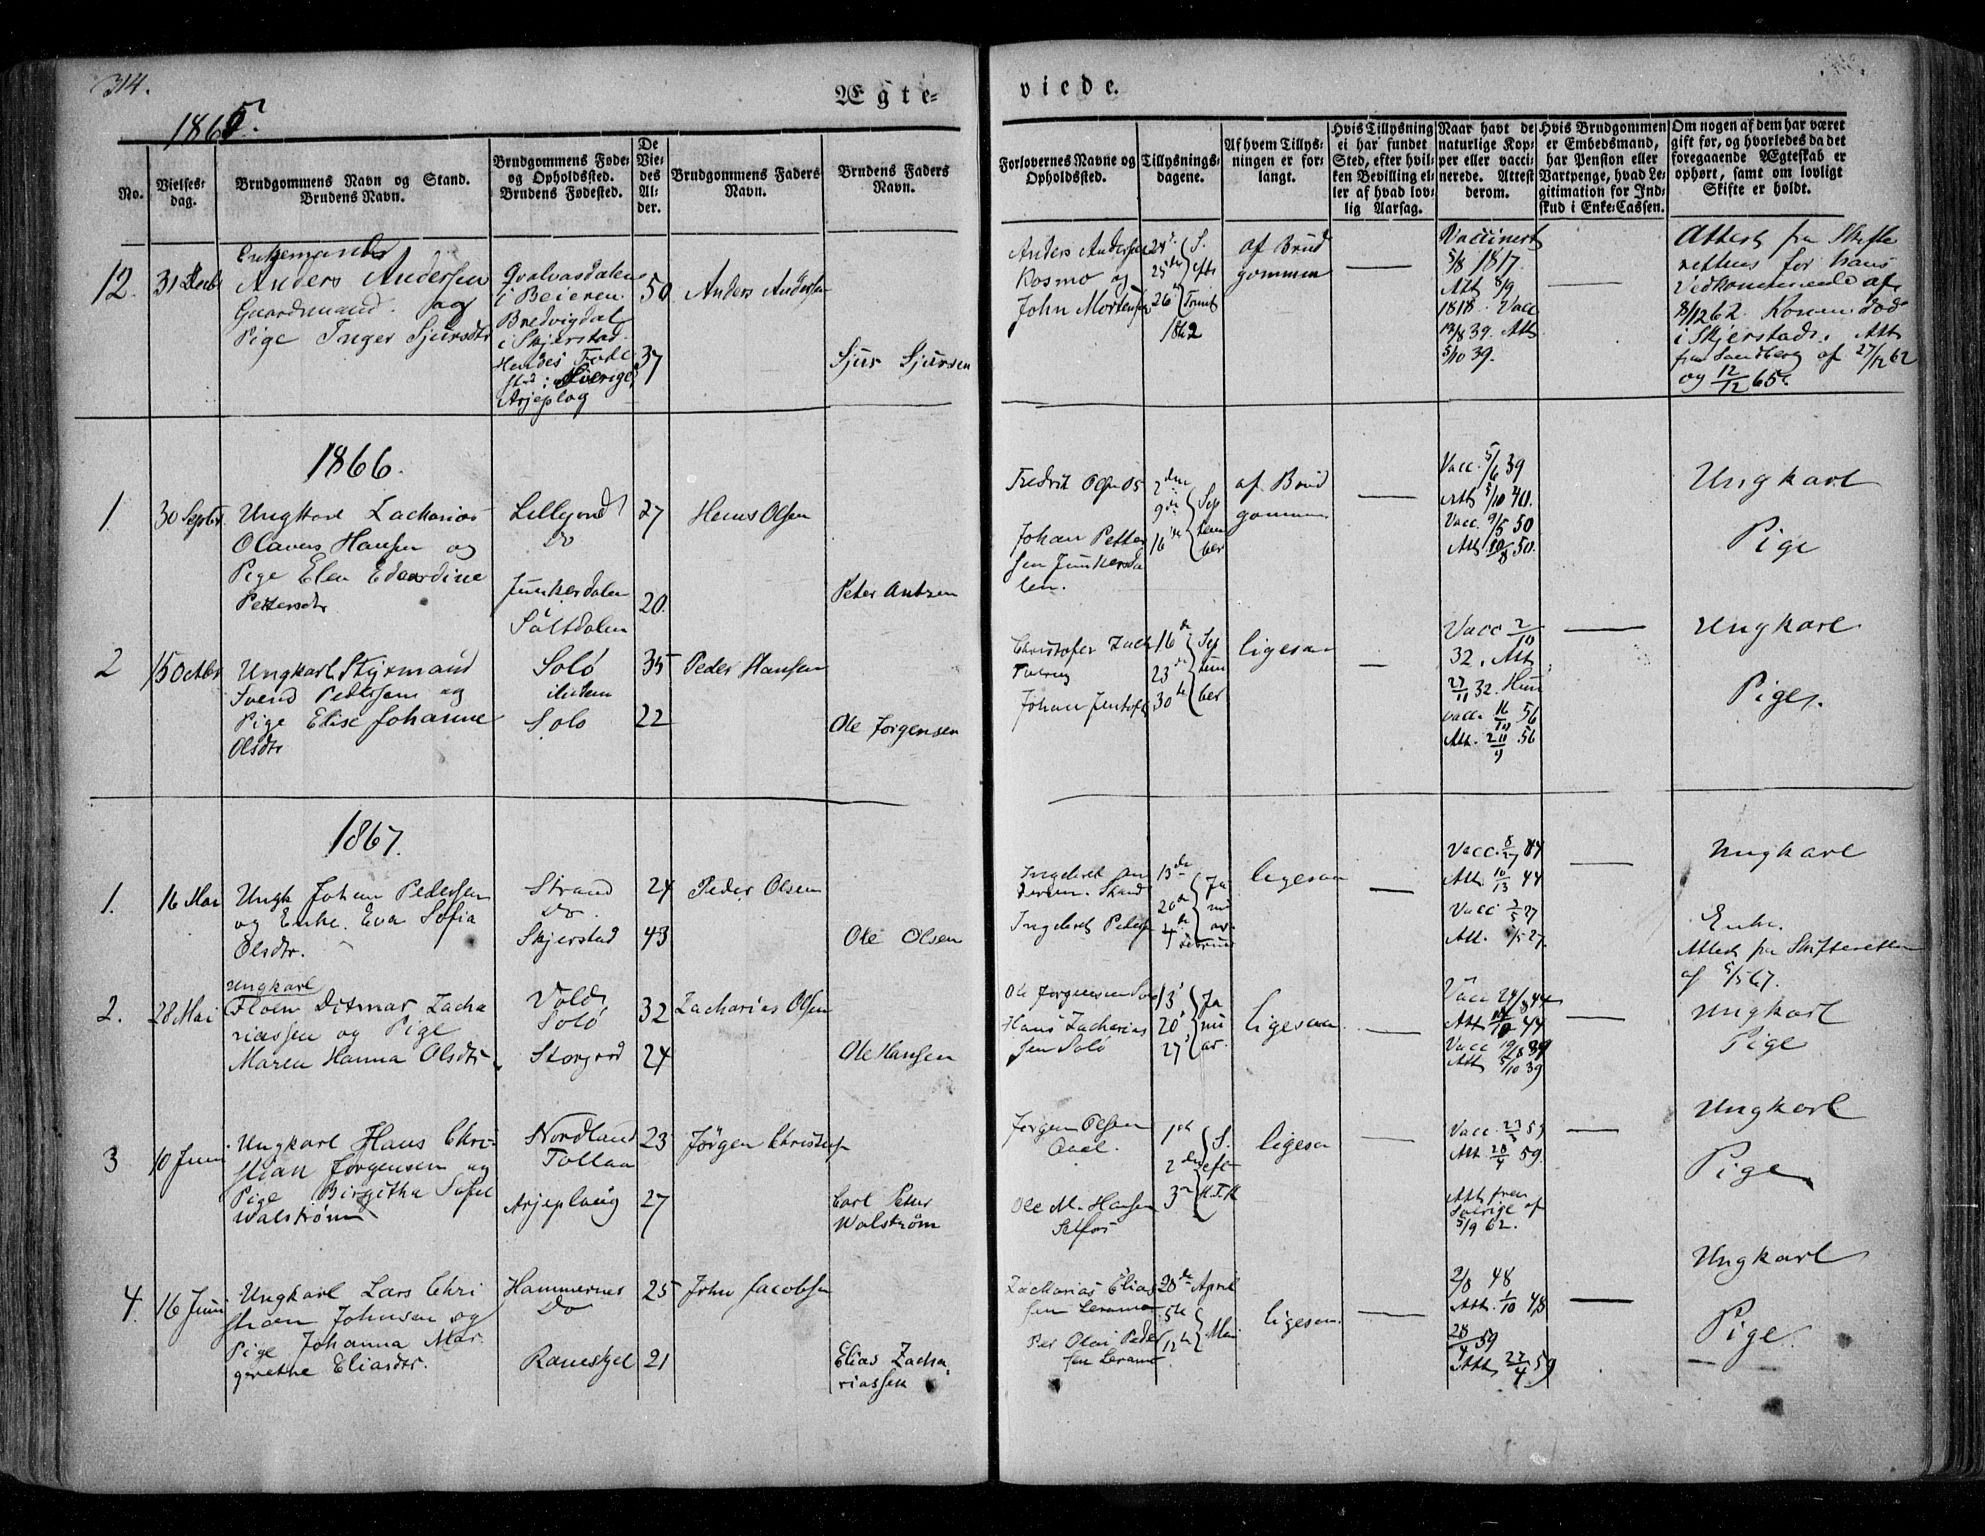 314.
Ægte-
viede.
1865.
No.
Vielses-
dag.
Brudgommens Navn og Stand.
Brudens Navn.
Brudgommens Føde-
og Opholdssted.
Brudens Fødested.
De
Vie-
des
Al-
der.
Brudgommens Faders
Navn.
Brudens Faders
Navn.
Forlovernes Navne og
Opholdssted.
Tillysnings-
dagene.
Af hvem Tillys-
ningen er for-
langt.
Hvis Tillysning
ei har fundet
Sted, efter hvil-
ken Bevilling el-
ler af hvad lov-
lig Aarsag.
Naar havt de
naturlige Kop-
per eller vacci-
nerede. Attest
derom.
Hvis Brudgommen
er Embedsmand,
har Pension eller
Vartpenge, hvad Le-
gitimation for Ind-
skud i Enke-Cassen.
Om nogen af dem har været
gift før, og hvorledes da det
foregaaende Ægteskab er
ophørt, samt om lovligt
Skifte er holdt.
12. 31 Decbr
Enkemand
Anders Andersen
Gaardmand og
Pige Inger Sjursdtr
i Beieren
Bredvigdal
i Skjerstad.
Hendes Føde
sted i Sverige
Arjeplog
50
37
Anders Andersen
Sjur Sjursen
Anders Andersen
Kosmo og
John Mortensen
24de
25de
26de
S.
eftr
Trinit
1862
af Brud
gommen
Vaccinert
5/8 1817.
Att 8/9
1818. Vacc
12/8 39. Att
5/10 39.
Attest fra Skifte
retten for hans
Vedkommende af
8/12 62. Konen død
i Skjerstad. Att
fra Sandberg af 27/12 62
og 12/12 65.
1866.
1. 30 Septbr.
Ungkarl Zacharias
Olaveus Hansen og
Pige Elen Edvardine
Pettersdtr
Do
Junkerdalen
Saltdalen
27
20
Hans Olsen
Peter Antzen
Fredrik
Johan Petter
sen Junkersda
len.
2den
9de
16de
Sep
tem
ber
af Brud
gommen
Vacc. 5/6 39
Att 5/10 40.
Vacc 9/5 50
Att. 10/8 50.
Ungkarl
Pige
2 15 Octbr
Ungkarl Styrmand
Svend Pedersen og
Pige Elise Johanne
Olsdtr
Solø
Solø
35
22
Peder Hansen
Ole Jørgensen
Christofer Zach
Johan Jentoft
16de
23de
30te
Sep
tem
ber
ligesaa
Vacc 2/10
32. Att
27/11 32. Hun
vacc. 16/10 56
Att. 20/9 56
Ungkarl
Pige.
1867.
1. 16 Mai
Ungk Johan Pedersen
og Enke. Eva Sofia
Olsdtr.
Strand
Do.
Skjerstad
24
43
Peder Olsen
Ole Olsen
Ingebret
Ingebret Peders
13de
20de
4de
Ja
nu
ar
Februar
ligesaa
Vacc. 8/7 44
Att. 10/13 44
Vacc 2/5 27
Att. /5 27.
Ungkarl
Enke.
Attest fra Skifteretten
af 5/5 67.
2. 28 Mai
Ungkarl
Floen Ditmar Zacha
riassen og Pige
Maren Hanna Olsdtr
Vold
Solø
Storjord
32
24
Zacharias Olsen
Ole Hansen
Ole Jørgensen Solø
Hans Zacharias
sen Solø
13
20
27
Ja
nu
ar.
ligesaa
Vacc 24/8 44
Att 44
Vacc 19/8 39
Att 5/10 39
Ungkarl
Pige
3 10 Juni
Ungkarl Hans Chri-
stian Jørgensen og
Pige Birgitha Sofie
Walstrøm
Nordland
Tollaa
Arjeplaug
23
27
Jørgen Christens
Carl Peter
Walstrøm
Jørgen Olsen
Ole M. Hansen
Selfos
1ste
2den
3die
S.
eft
H.T.K
ligesaa
Vacc 23/3 59
Att. 20/4 59.
Att fra
Sverige af
5/9 62.
Ungkarl
Pige
4. 16 Juni
Ungkarl Lars Chri
stian Johnsen og
Pige Johanna Mar
grethe Eliasdtr.
Hammernes
Do
Ramskjel
25
21
John Jacobsen
Elias Zacha
riassen
Zacharias Elias
sen Leramo
Per Olai Peder
sen Leramo
28de April
5te
12te
Mai
ligesaa
2/8 48
Att. 1/10 48
28/4 59
Att 27/4 59
Ungkarl
Pige.